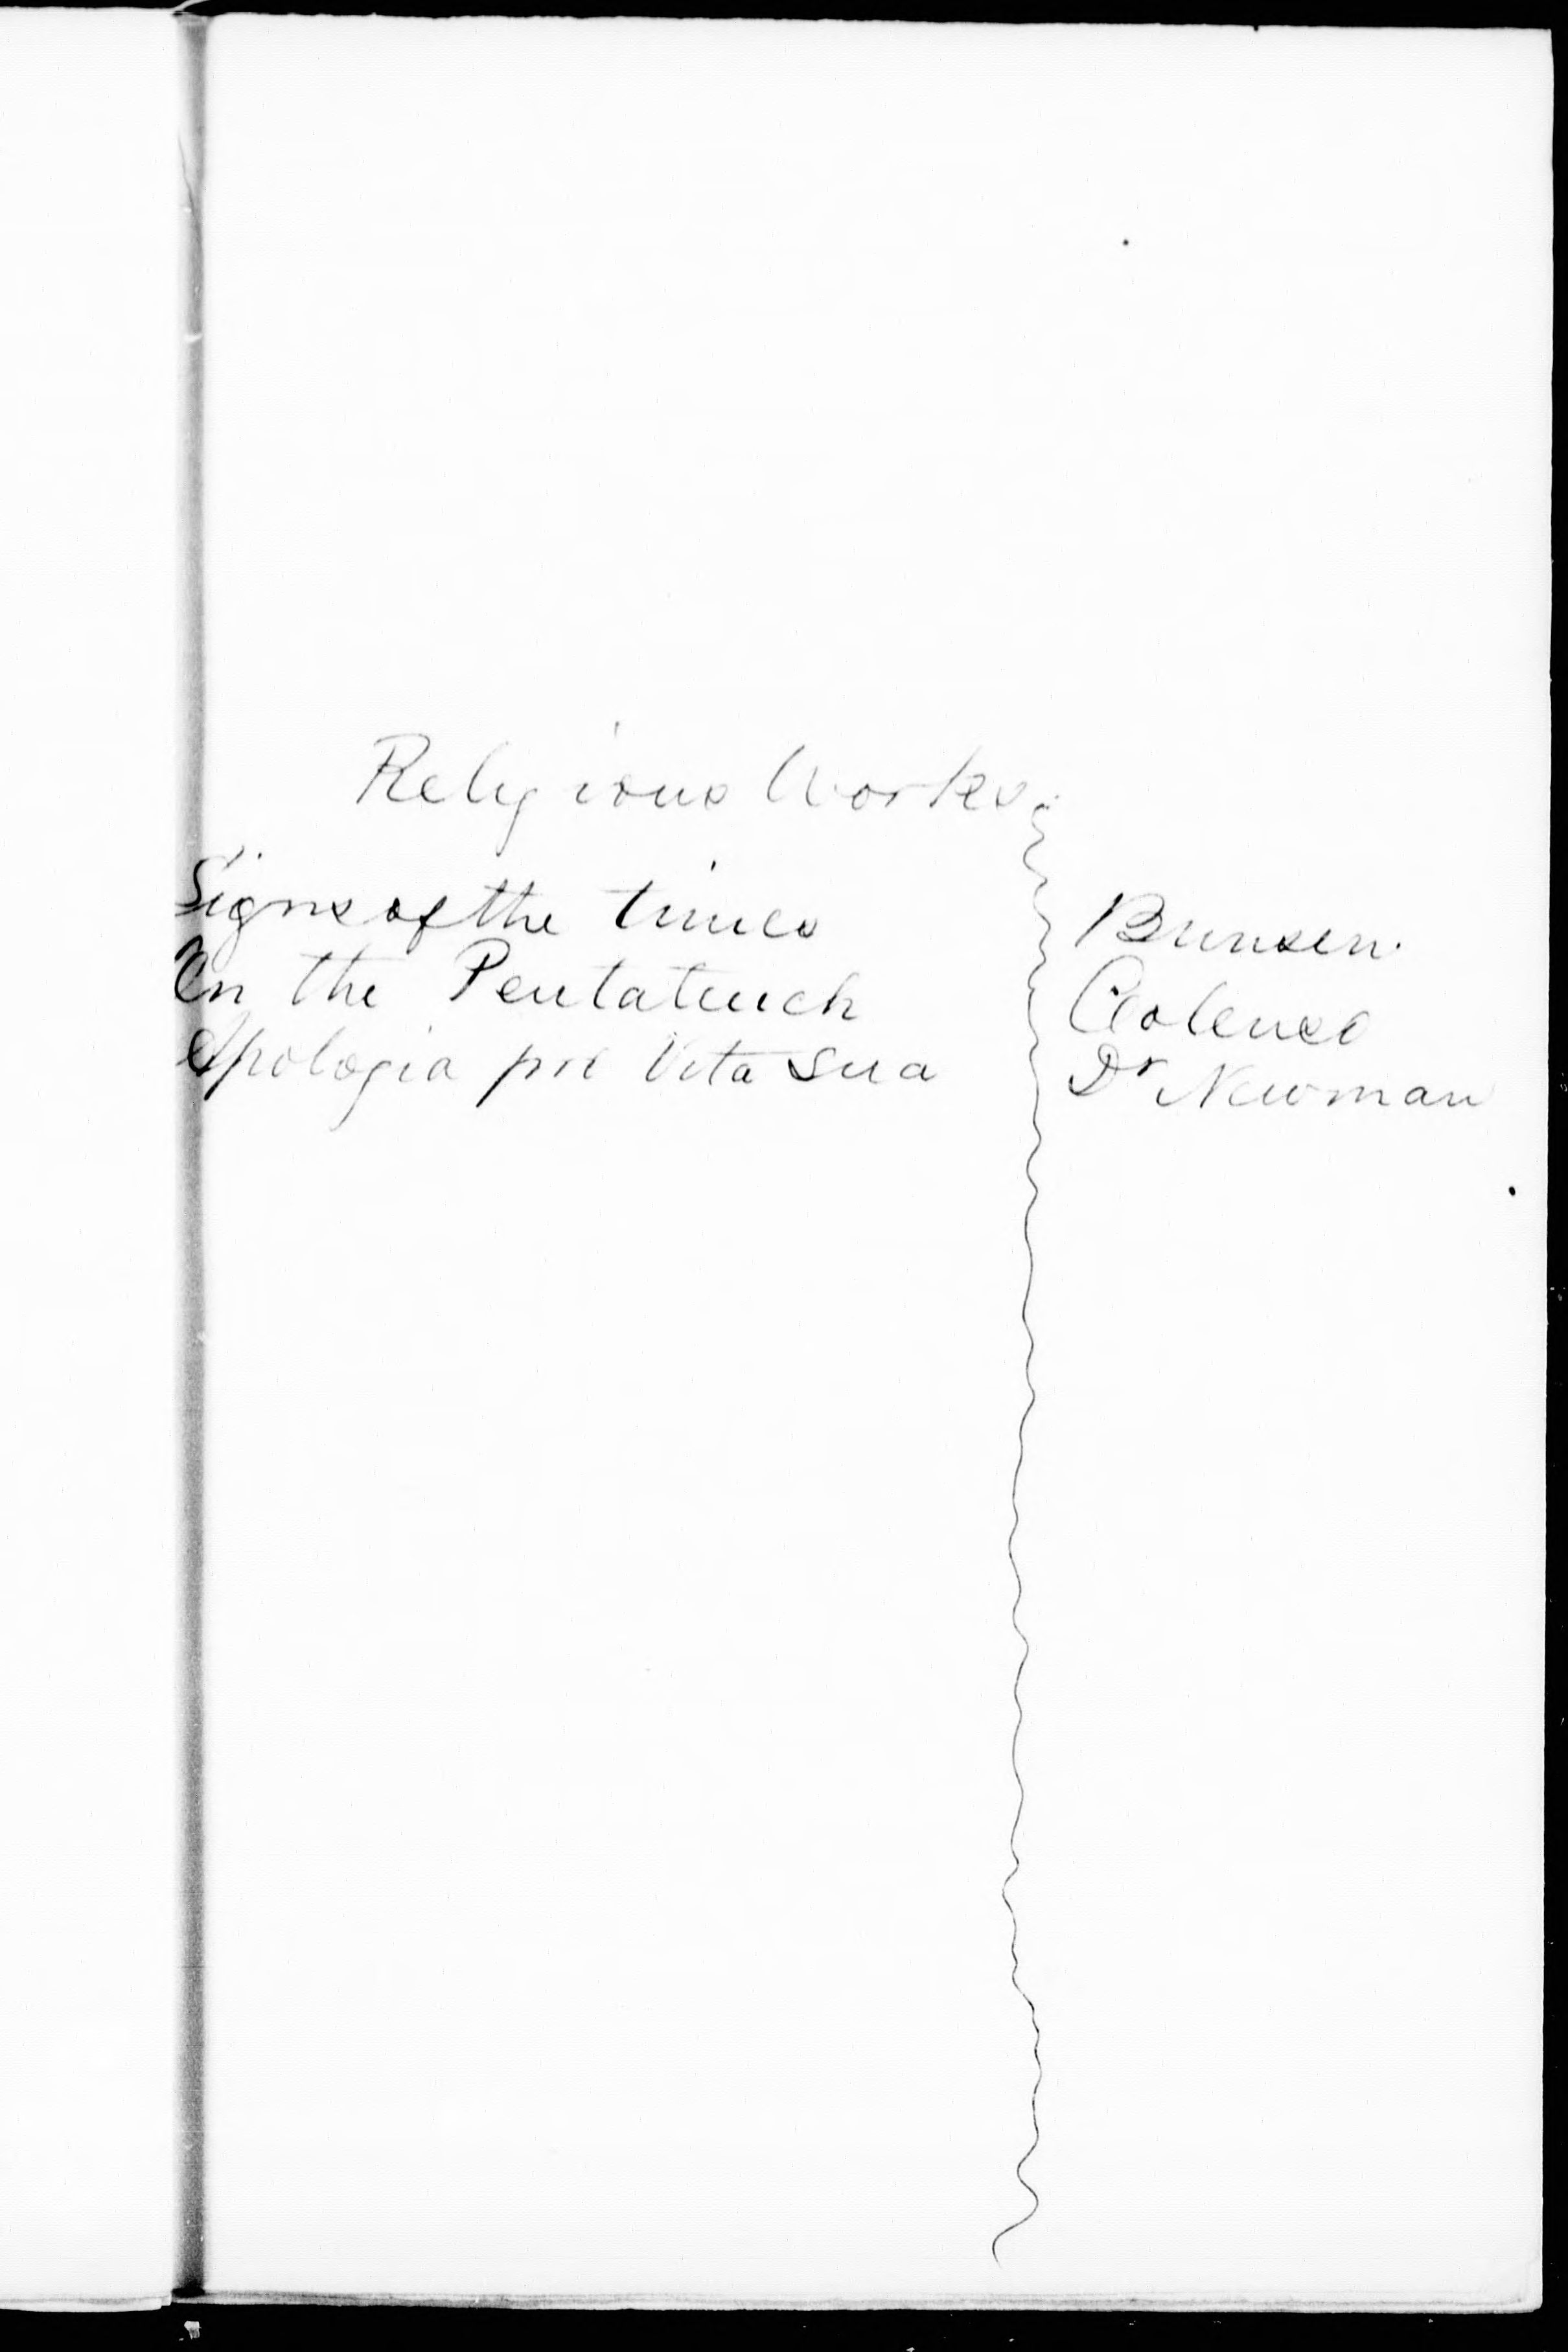 Religious Works.
Signs of the times Bunsen.
On the Pentateuch Colenso
Apologia pro Vita Sua Dr Newman